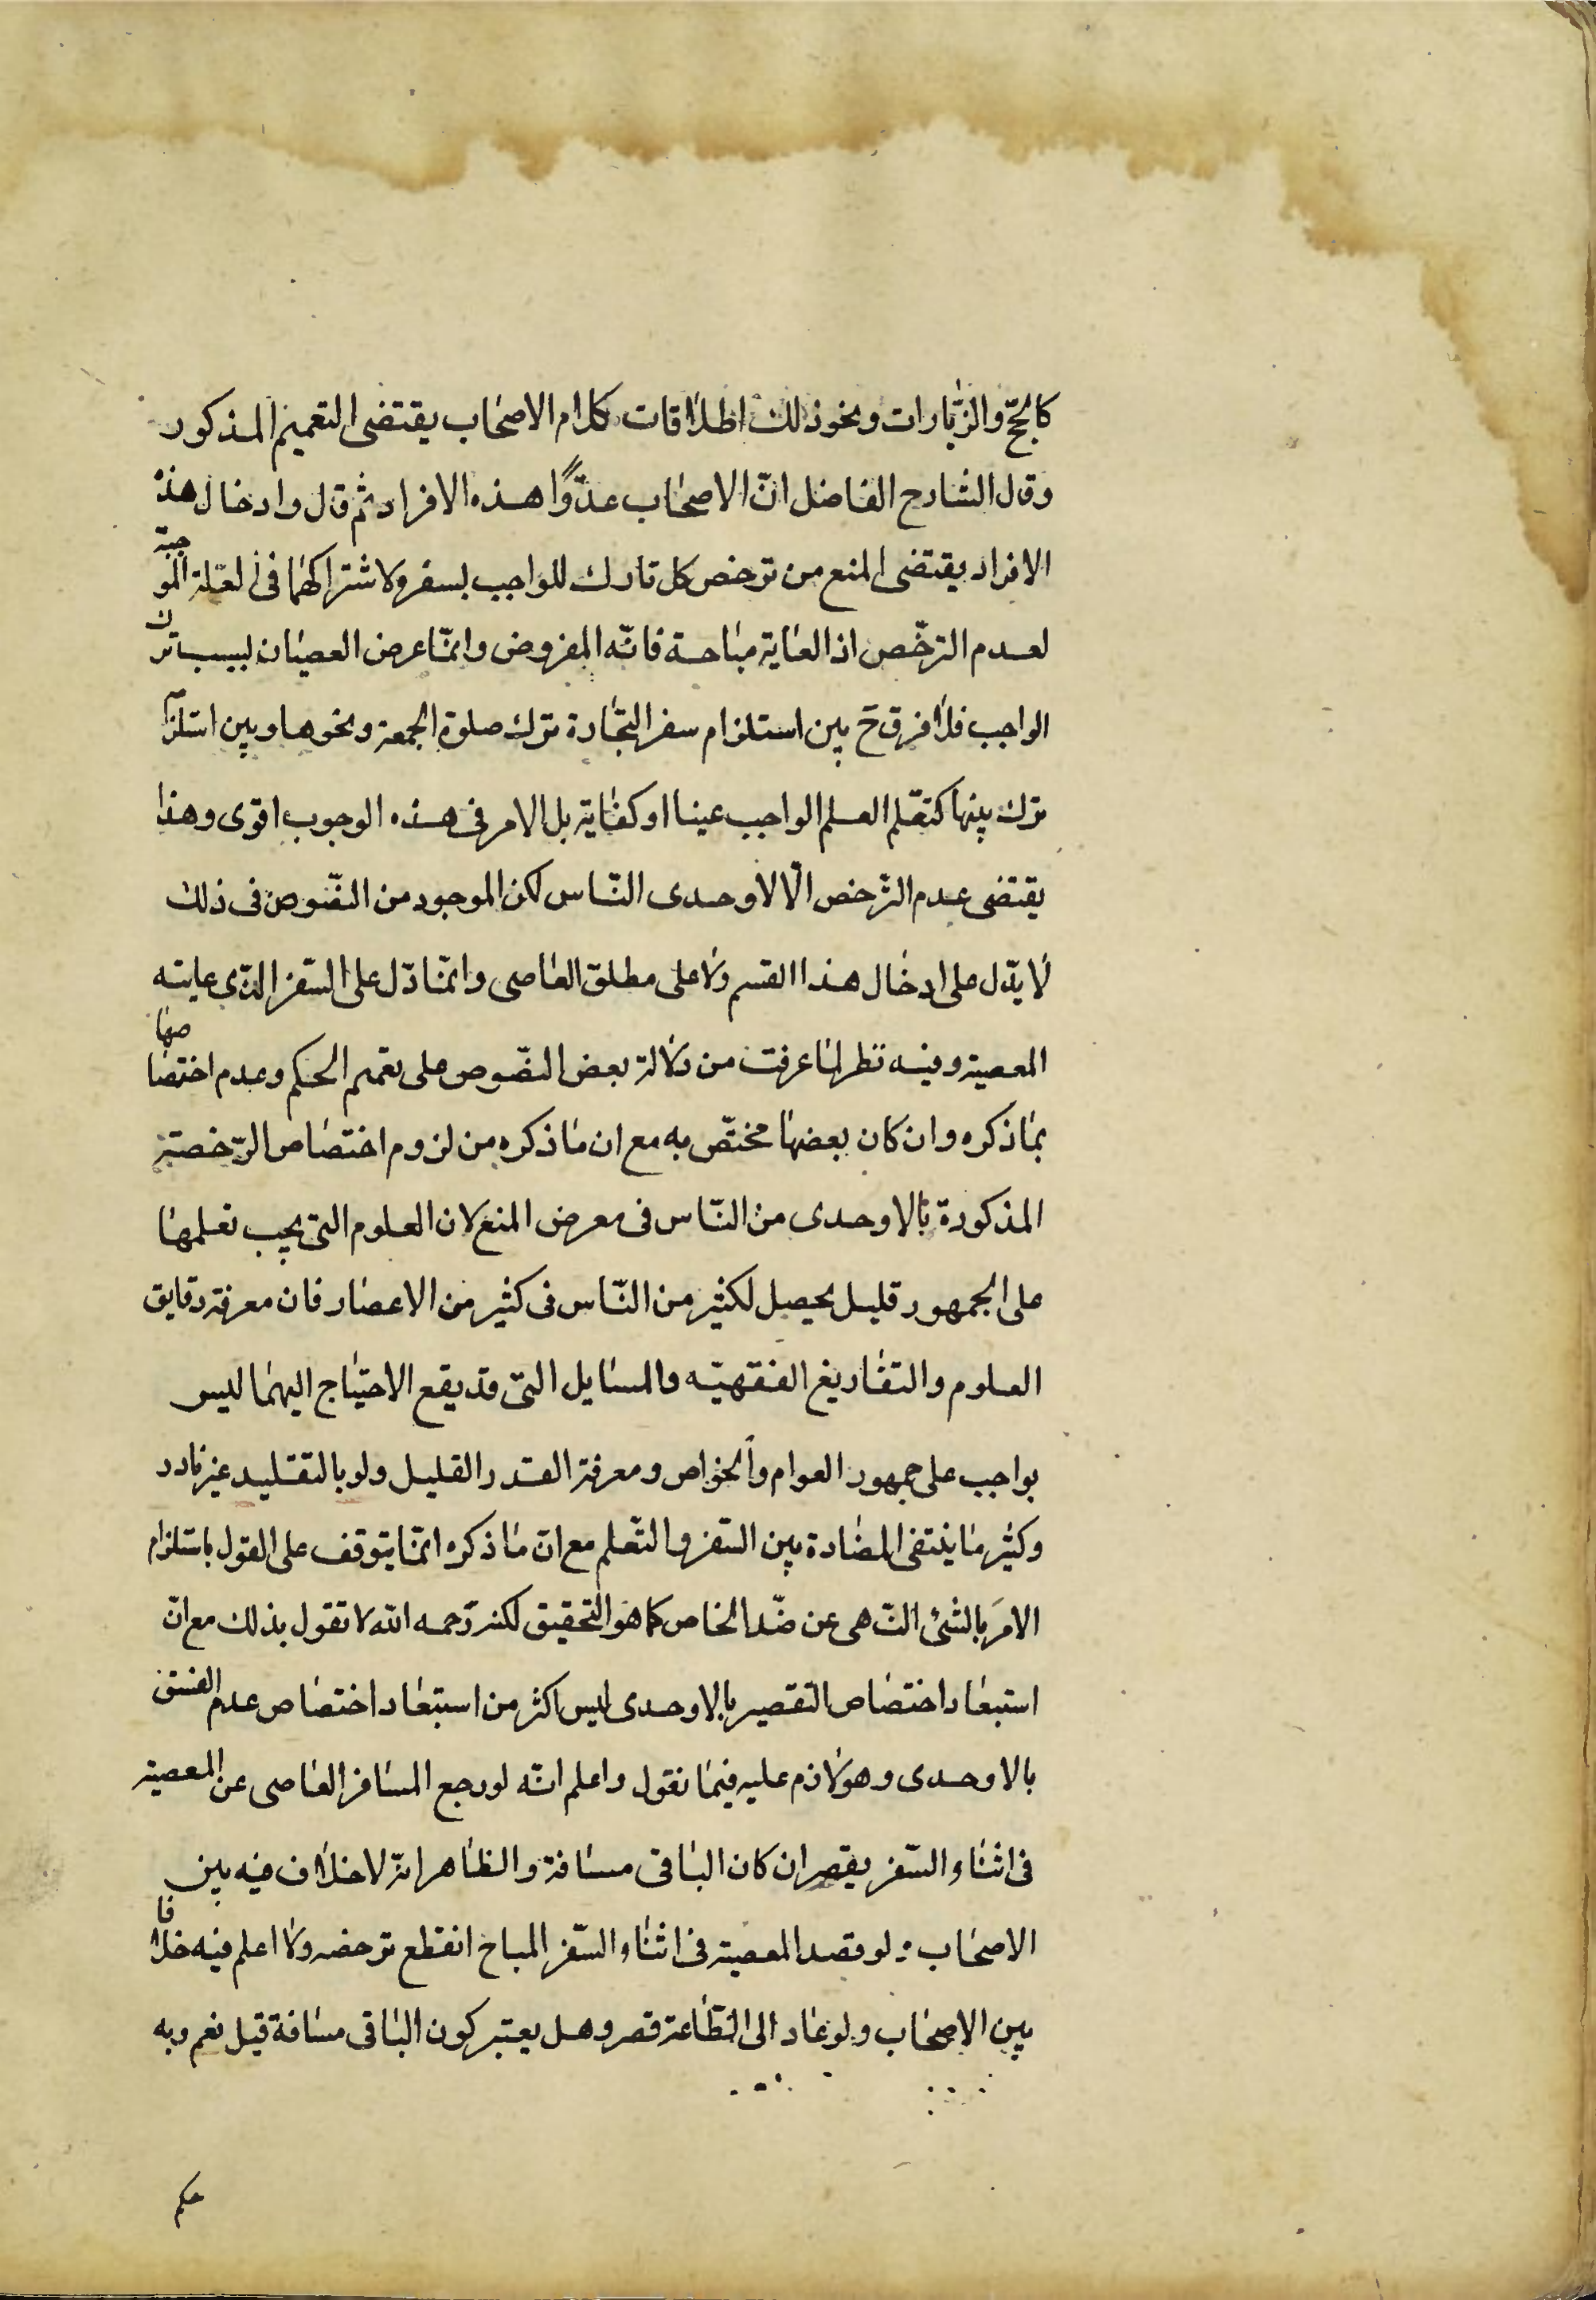 كالحجّ والزّيارات ونحو ذلك اطلاقات كلام الاصحاب يقتضى التعميم المذكور
وقال الشارح الفاضل انّ الاصحاب عدّوا هذه الافراد ثم قال وادخال هذه
الافراد يقتضى المنع من ترخص كل تارك للواجب بسفره لاشتراكهما فى العّلة الموجبة
لعدم الترخّص اذ الغاية مباحة فانّه المفروض وانّما عرض العصيان بسبب ترك
الواجب فلا فرق ح بين استلزام سفر التجّارة ترك صلوة الجمعة ونحوها وبين استلزام
ترك بينها كتعّلم العلم الواجب عينا او كفاية بل الامر فى هذه الوجوب اقوى وهذا
يقتضى عدم الترخص الّا لاوحدى النّاس لكن الموجود من النّصوص فى ذلك
لا يدّل على ادخال هذا القسم ولا على مطلق العاصى وانّما دّل على السّفر الذّى غايته
المعصية وفيه نظر لما عرفت من دلالة بعض النصّوص على تعميم الحكم وعدم اختصاصها
بما ذكره وان كان بعضها مختصّ به مع ان ما ذكره من لزوم اختصاص الرّخصة
المذكورة بالاوحدى من النّاس فى معرض المنع لان العلوم التى يجب تعلمها
على الجمهور قليل يحصل لكثير من النّاس فى كثير من الاعصار فان معرفة دقايق
العلوم والتفاريغ الفقهيّه والمسايل التى قد يقع الاحتياج اليهما ليس
بواجب على جمهور العوام والخواص ومعرفة القدر القليل ولو بالتقليد غير نادر
وكثير ما ينتفى المضادة بين السّفر والتّعلم مع انّ ما ذكره انّما يتوقف على القول باستلزام
الامر بالشئ النّهى عن ضّد الخاص كما هو التحقيق لكنه رّحمه الله لا تقول بذلك مع انّ
استبعاد اختصاص التقصير بالاوحدى ليس اكثر من استبعاد اختصاص عدم الفسق
بالاوحدى وهو لازم عليه فيما نقول واعلم انّه لو رجع المسافر العاصى عن المعصية
فى اثناء السّفر يقصر ان كان الباقى مسافة والظاهر انّه لا خلاف فيه بين
الاصحاب ولو قصد المعصية فى اثناء السّفر المباح انقطع ترخصه ولا اعلم فيه خلافا
بين الاصحاب ولو عاد الى الطّاعة قصر وهل يعتبر كون الباقى مسافة قيل نعم وبه
حكم